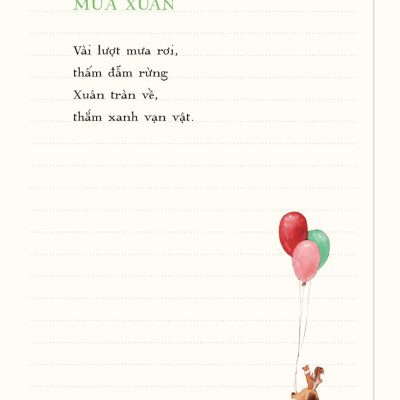 MÙA XUÂN
Vài lượt mưa rơi,
thấm đẫm rừng
Xuân tràn về,
thắm xanh vạn vật.